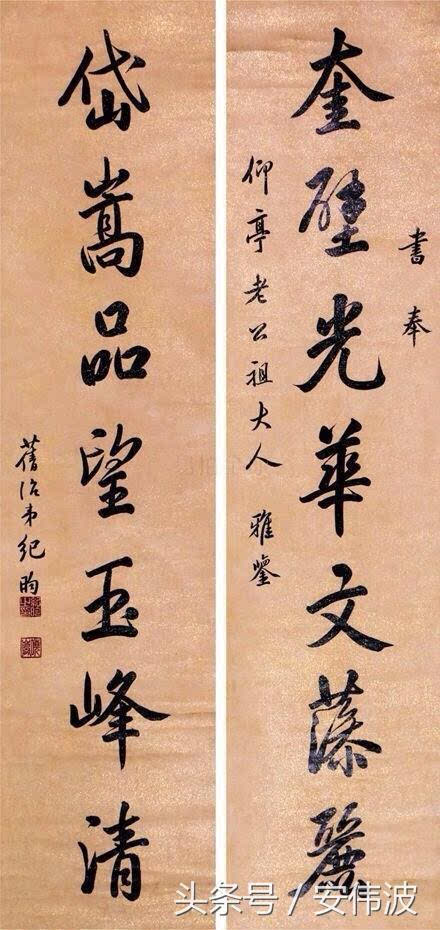 書奉
奎壁光華文藻麗
仰亭老公祖大人 雅鑒
岱嵩品望玉峰清
舊治弟紀昀
头条号 / 安伟波